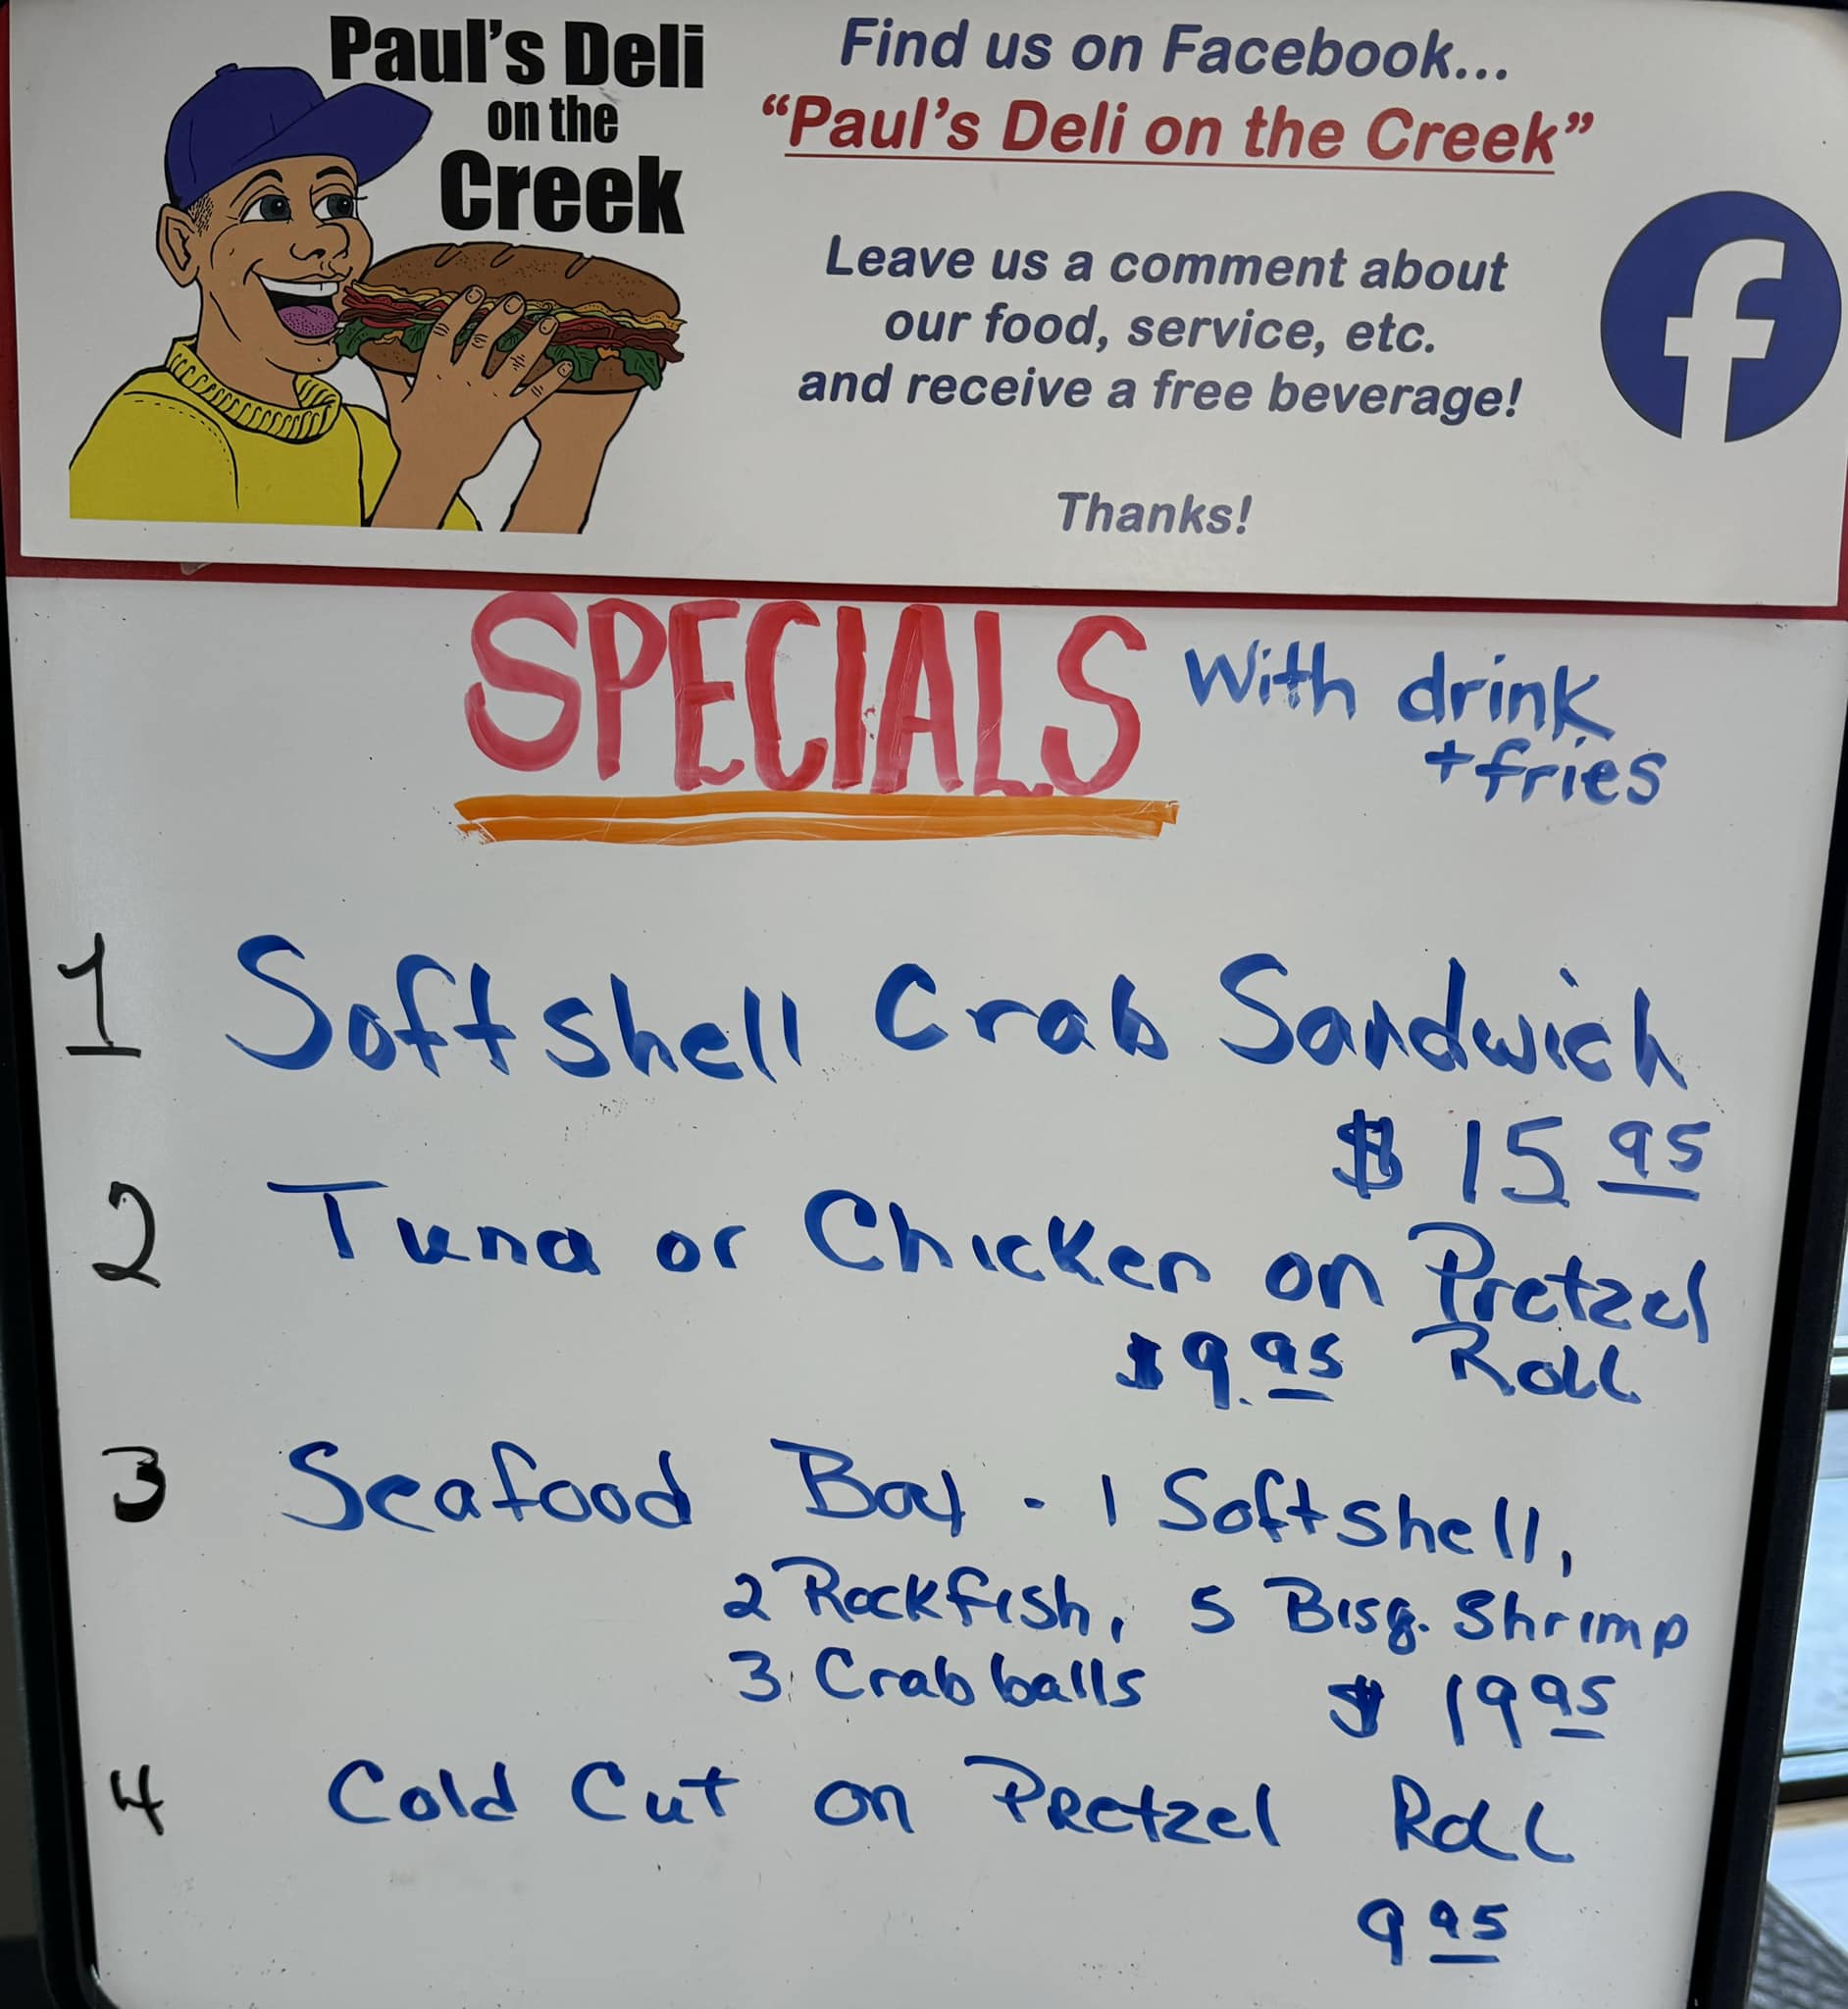 Paul's Deli
on the
Creek
Find us on Facebook...
“Paul's Deli on the Creek”
Leave us a comment about
our food, service, etc.
and receive a free beverage!
Thanks!
f
SPECIALS With drink
+ fries
1 Softshell Crab Sandwich
$ 15 95
2 Tuna or Chicken on Pretzel
$9.95 Roll
3 Seafood Boat - 1 Softshell,
2 Rockfish, 5 Bisq. Shrimp
3 Crab balls $ 19 95
4 Cold Cut on Pretzel Roll
9 95